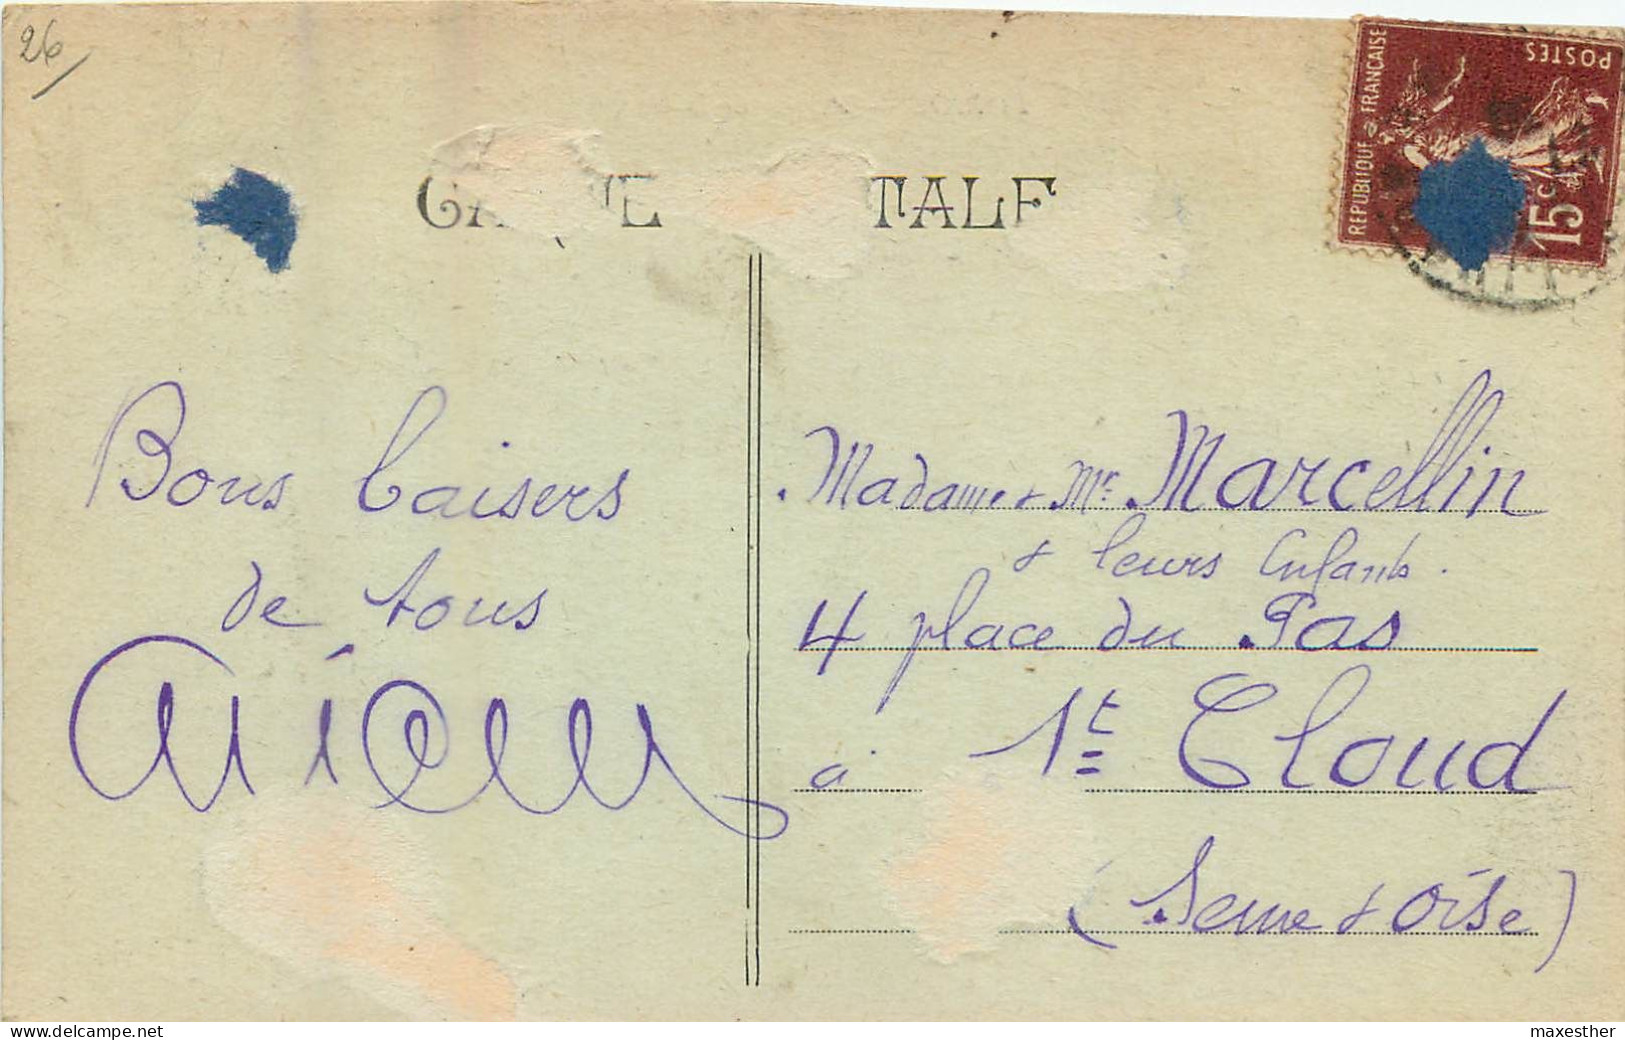 26/
TALE
REPUBLIQUE FRANCAISE
POSTES
15c
Bons baisers
de tous
Madame & Mr Marcellin
& leurs Enfants.
4 place du Pas
à St Cloud
(Seine & Oise)
www.delcampe.net
maxesther